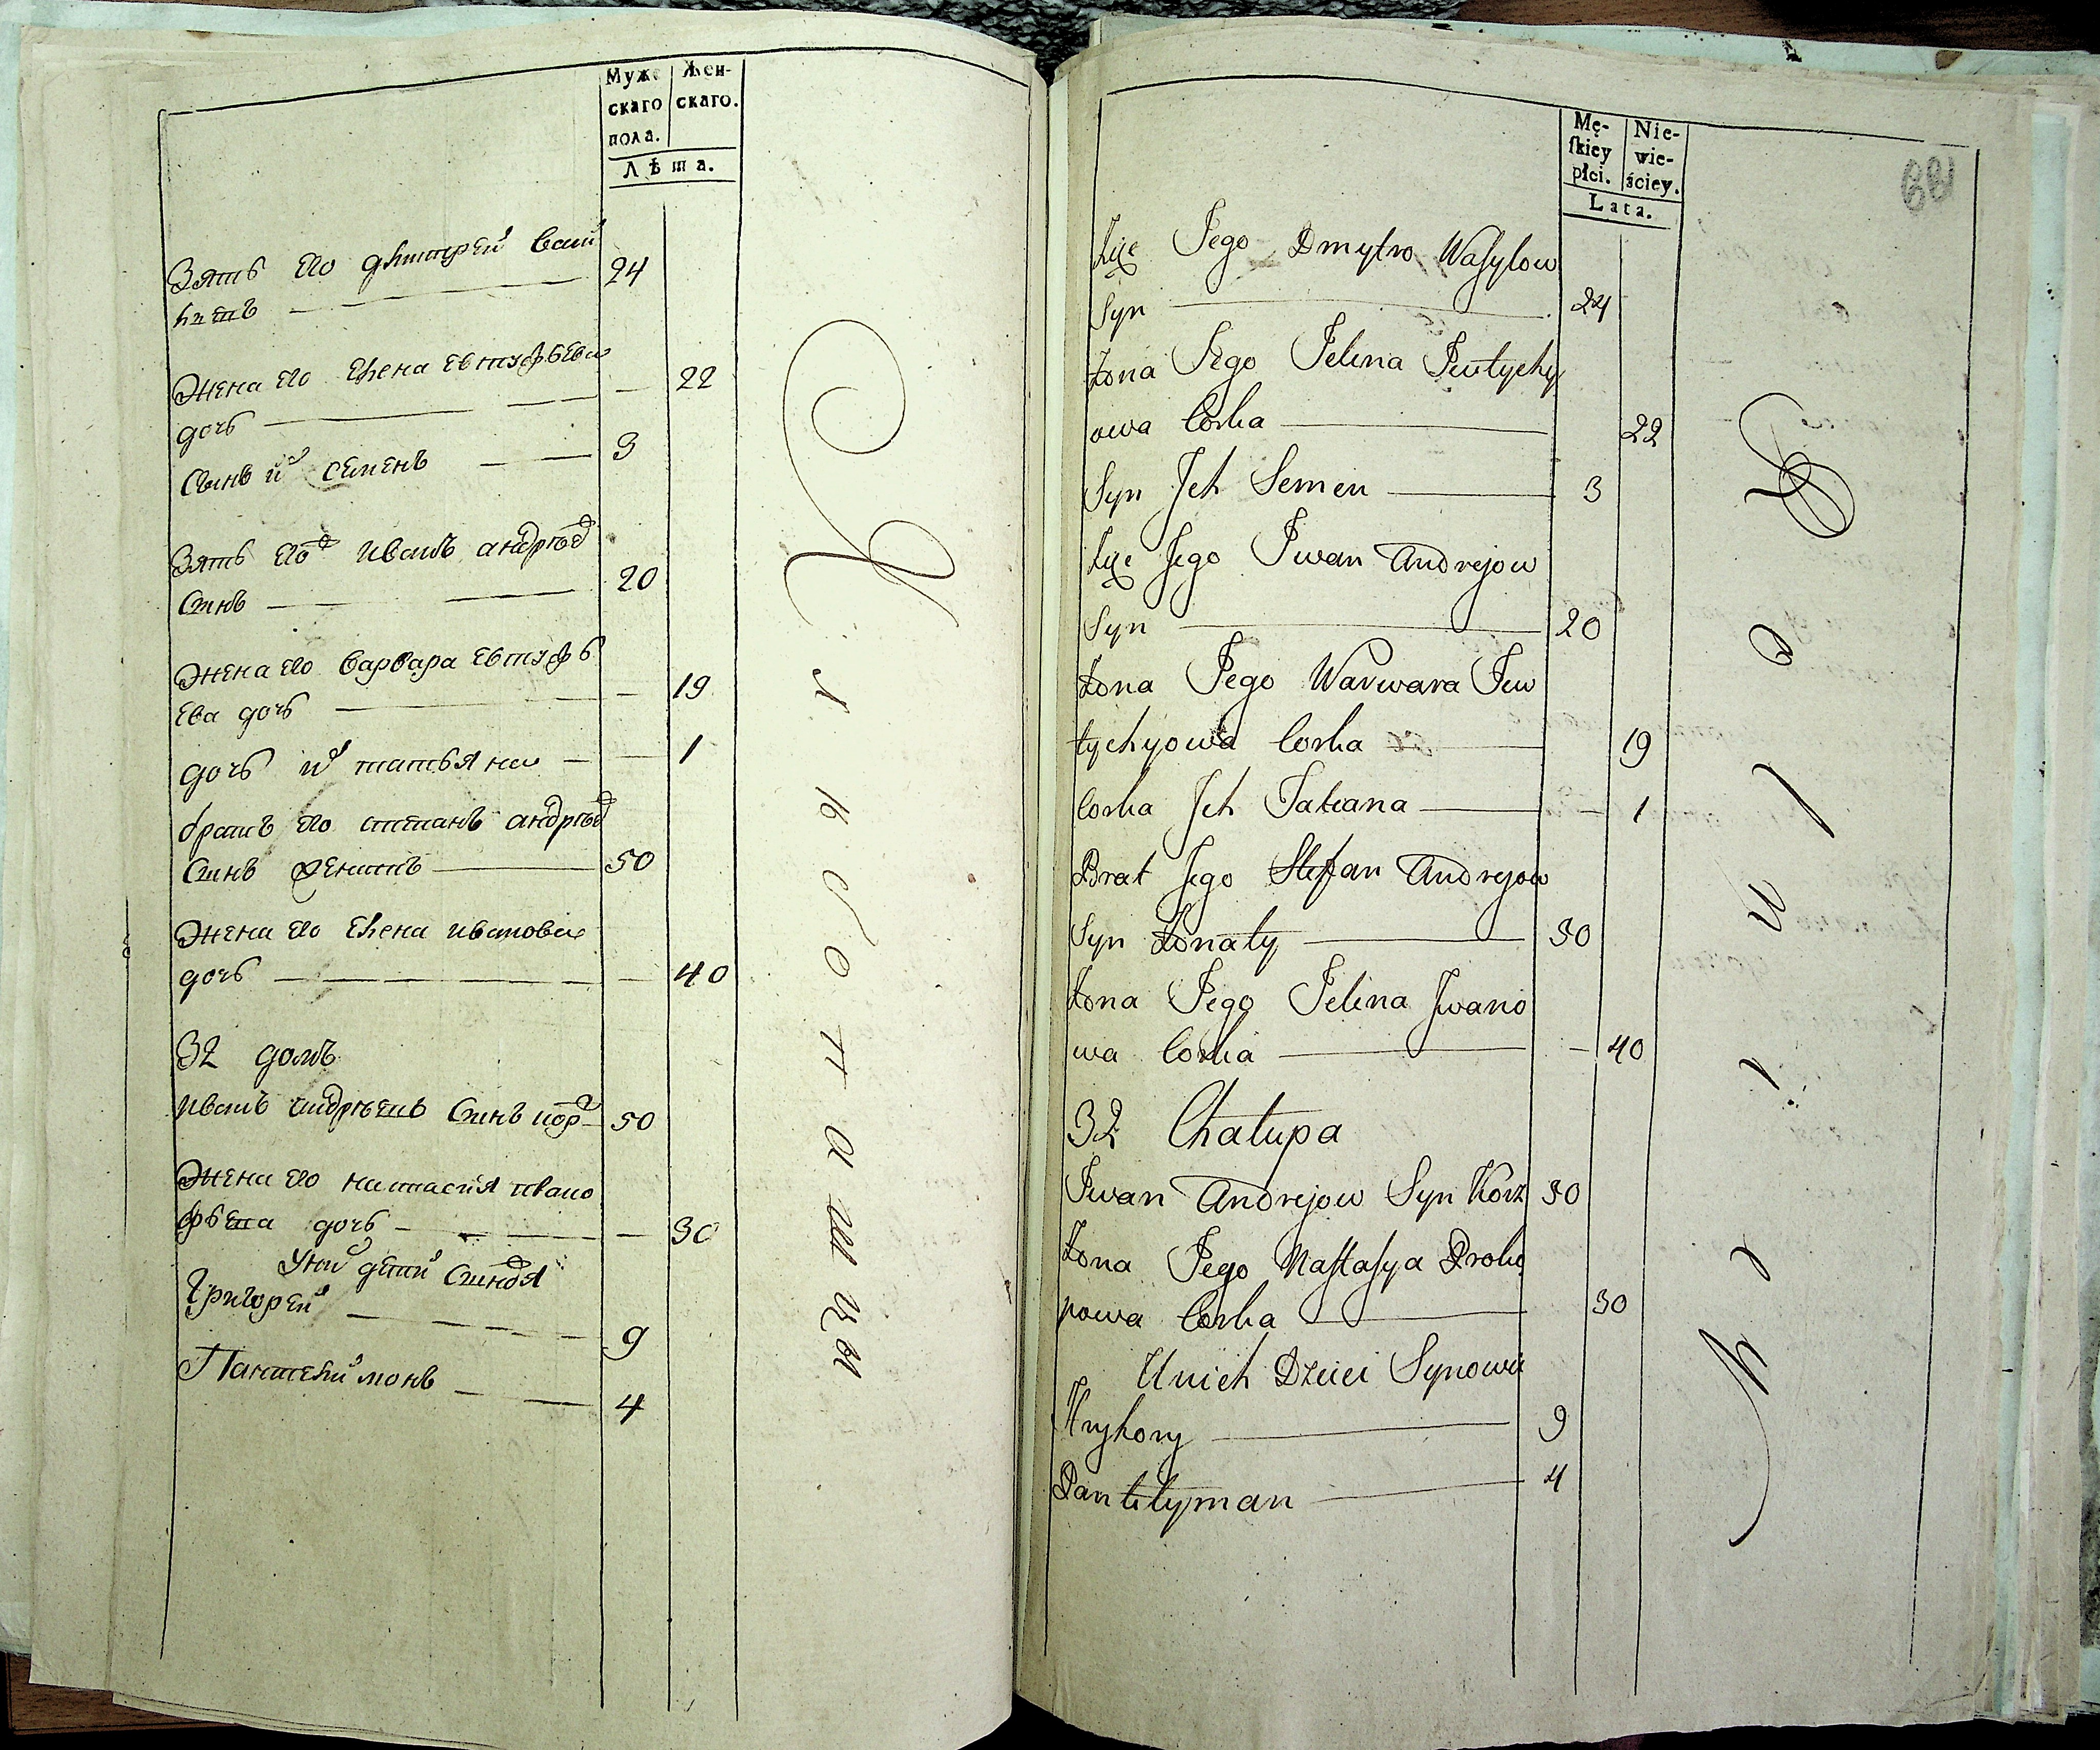 Муже
скаго
пола.
Жен-
скаго.
Лѣта.
Зять его дмитрей васи
24
жена его елена евтуфьева
22
дочь
сынъ и семенъ 3
Зять его иванъ андрѣ
синъ 20
жена его варвара евтуфь
ева дочь 19
дочь и татьяна 1
братъ его степанъ андрѣ
синъ женатъ 50
жена его елена иванова
дочь 40
32 домъ
иванъ андрѣевъ синъ кор 50
жена его настасия
дочь 30
у ни дети синовя
григорей 9
Пантелимонъ 4
Mę-
skiey
płci.
Nie-
wie-
ściey.
Lata.
Zięc Jego Dmytro Wasylow
Syn 24
Żona Jego Jelena Jewtychy
owa Corka 22
Syn Jch Semen 3
Zięc Jego Jwan Andrejow
Syn 20
Żona Jego Warwara Jew
tychyowa Corka 19
Corka Jch Tatiana 1
Brat Jego Stefan Andrejow
Syn Żonaty 50
Żona Jego Jelena Jwano
wa Corka 40
32 Chałupa
Jwan Andrejow Syn Korz 50
Żona Jego Nastasya Proko
powa Corka 30
Unich Dzieci Synowie
Hryhory 9
Pantelyman 4